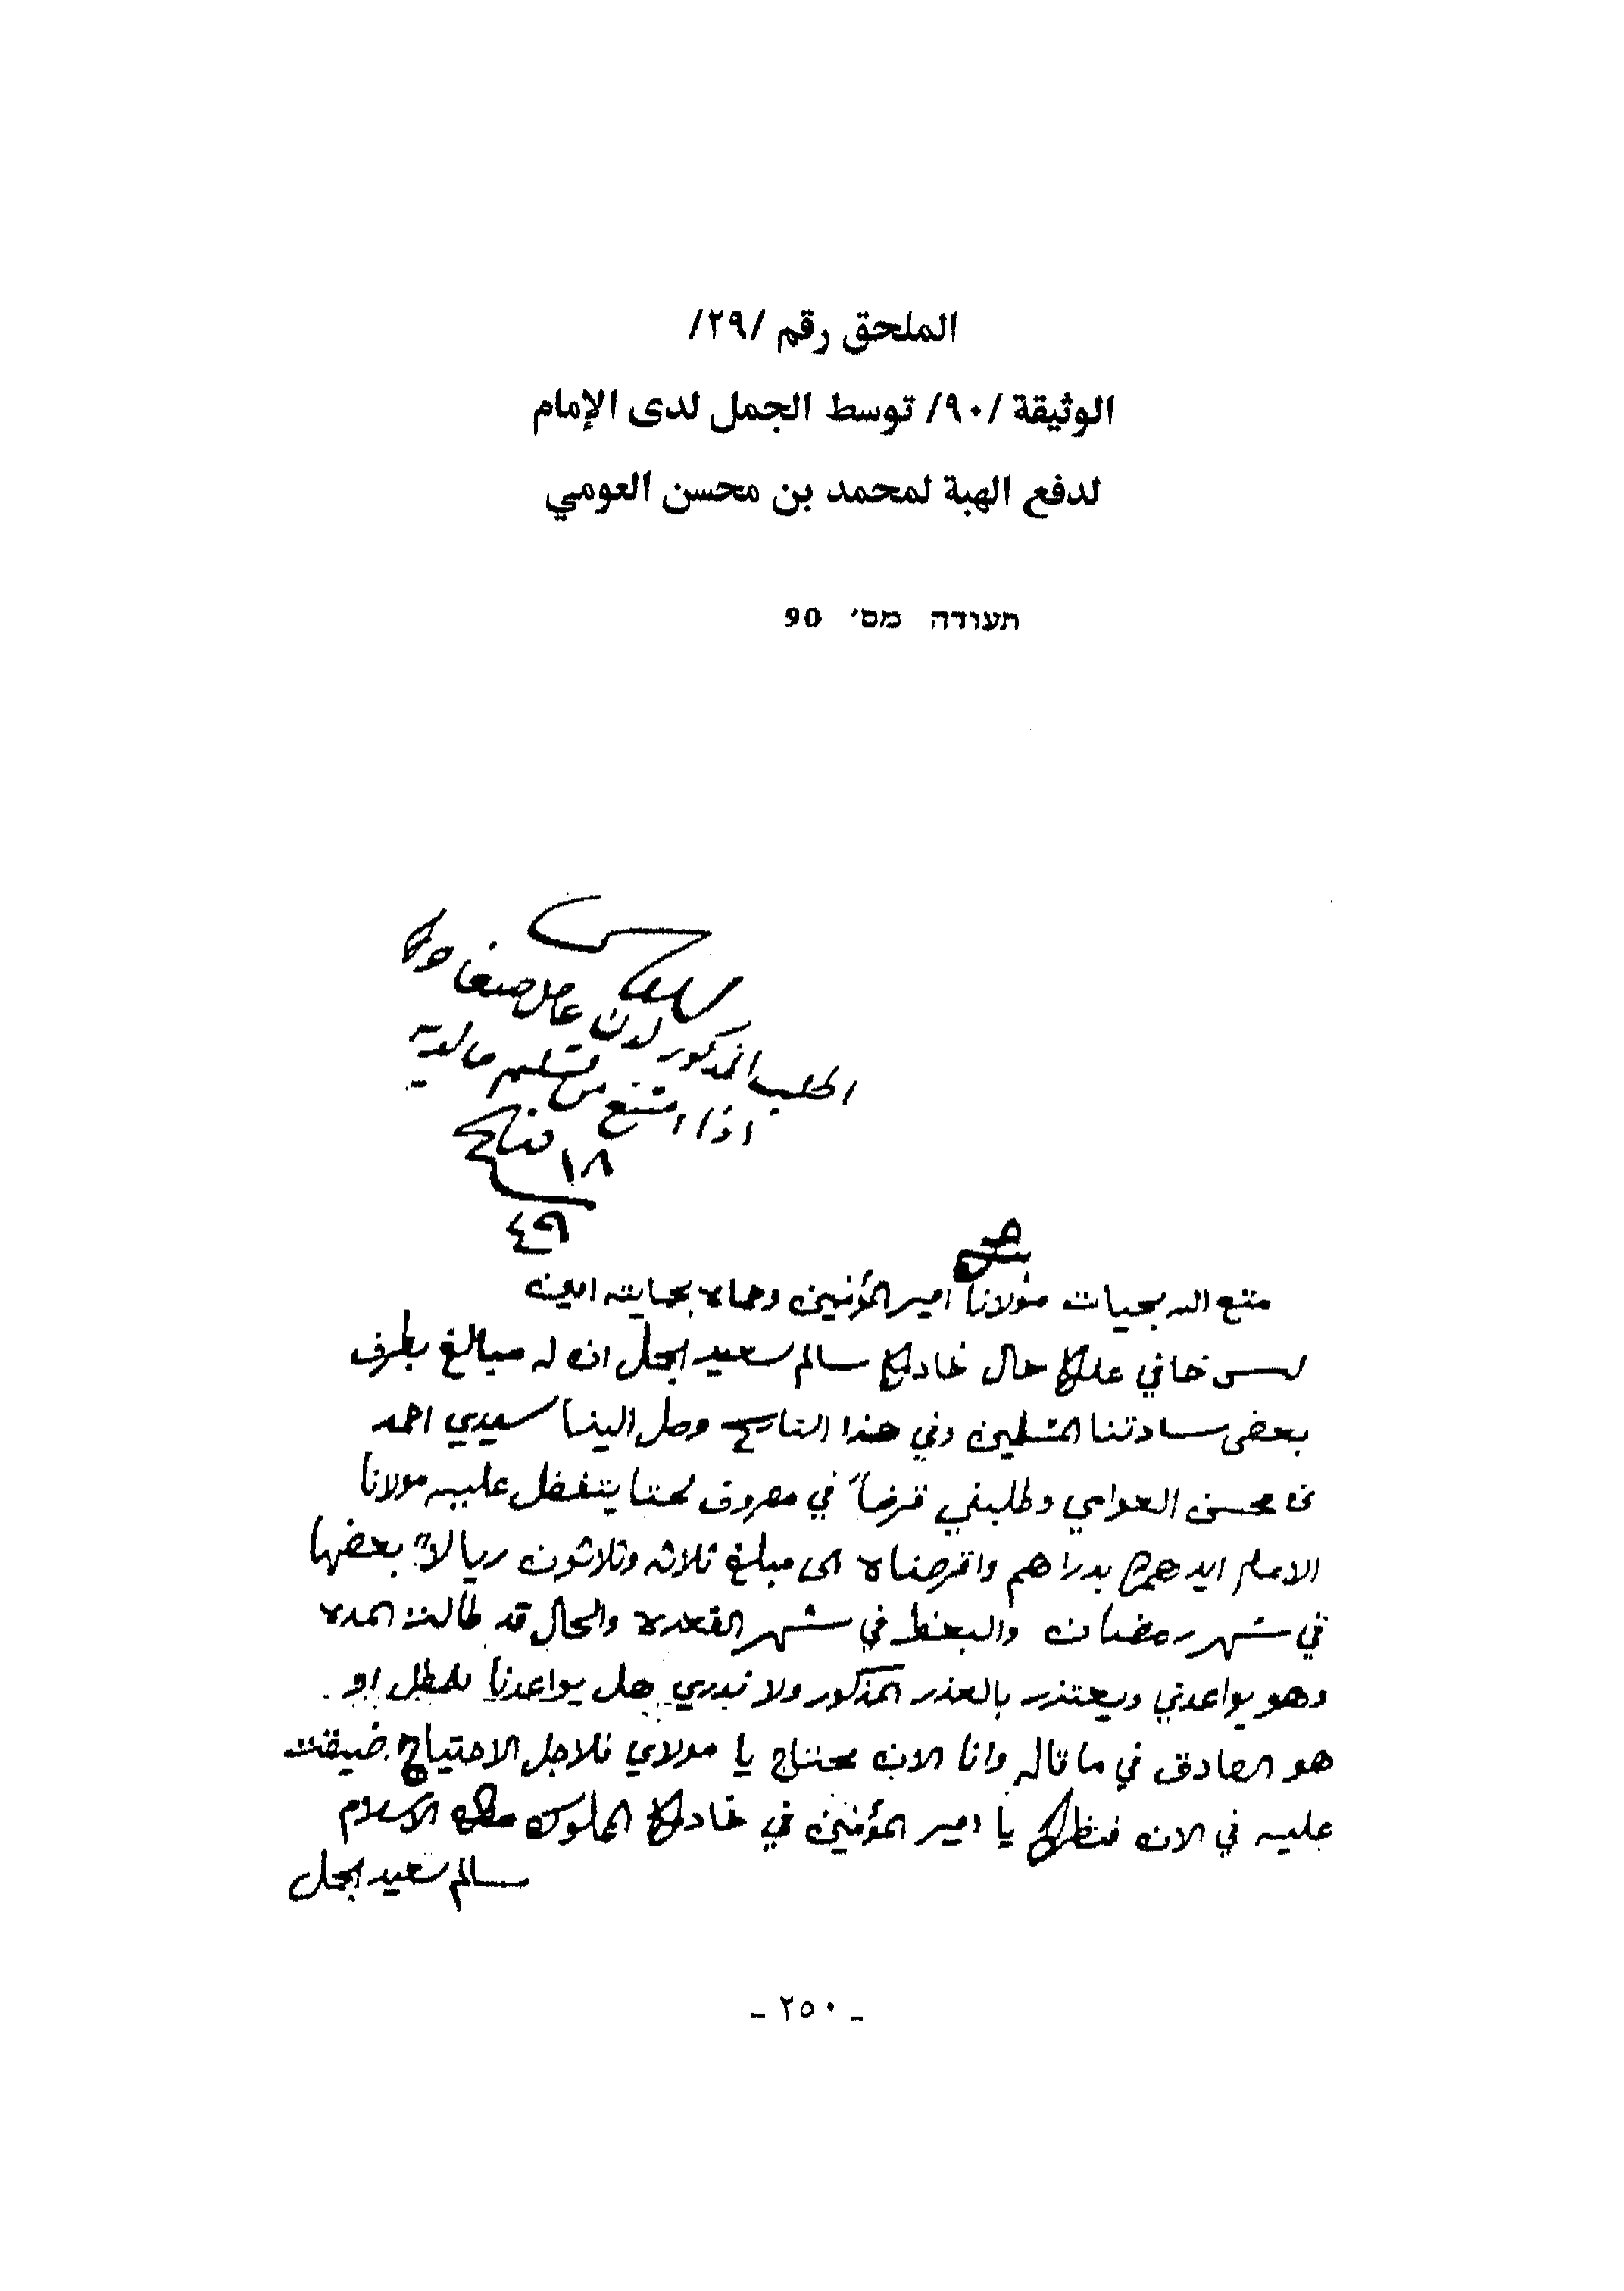 الملحق رقم /٢٩/
الوثيقة /٩٠/ توسط الجمل لدى الإمام
لدفع الهبة لمحمد بن محسن العومي
תעודה מס׳ 90
الطلب المذكور لدن عامل صنعا
اذا امتنع من تسليم ما لديه
١٨
٤٩
متع الله بحيات مولانا امير المؤمنين وحماه بحمايته امين
ليس خافي عليكم حال خادمكم سالم سعيد الجمل انه له مبالغ بطرف
بعض سادتنا المسلمين وفي هذا التاريخ وصل الينا سيدي احمد
بن محسن العوامي وطلبني قرضاً في معروف لحتا يتفضل عليه مولانا
الامام ايده الله بدراهم واقرضناه الى مبلغ ثلاثه وثلاثون ريالاً بعضها
في شهر رمضان والبعض في شهر القعده والحال قد طالت المده
وهو يواعدني ويعتذر بالعذر المذكور ولا ندري هل يواعدنا للمطل او
هو الصادق في ما قاله وانا الان محتاج يا مولاي فلاجل الاحتياج ضيقت
عليه في الان فنظركم يا امير المؤمنين في خادمكم المملوك الاسلام
سالم سعيد الجمل
- ٢٥٠ -